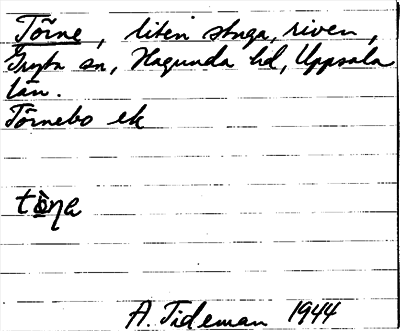 Törne, liten stuga, riven,
Gryta sn, Hagunda hd, Uppsala
län.
Törnebo ek
A. Tideman 1944